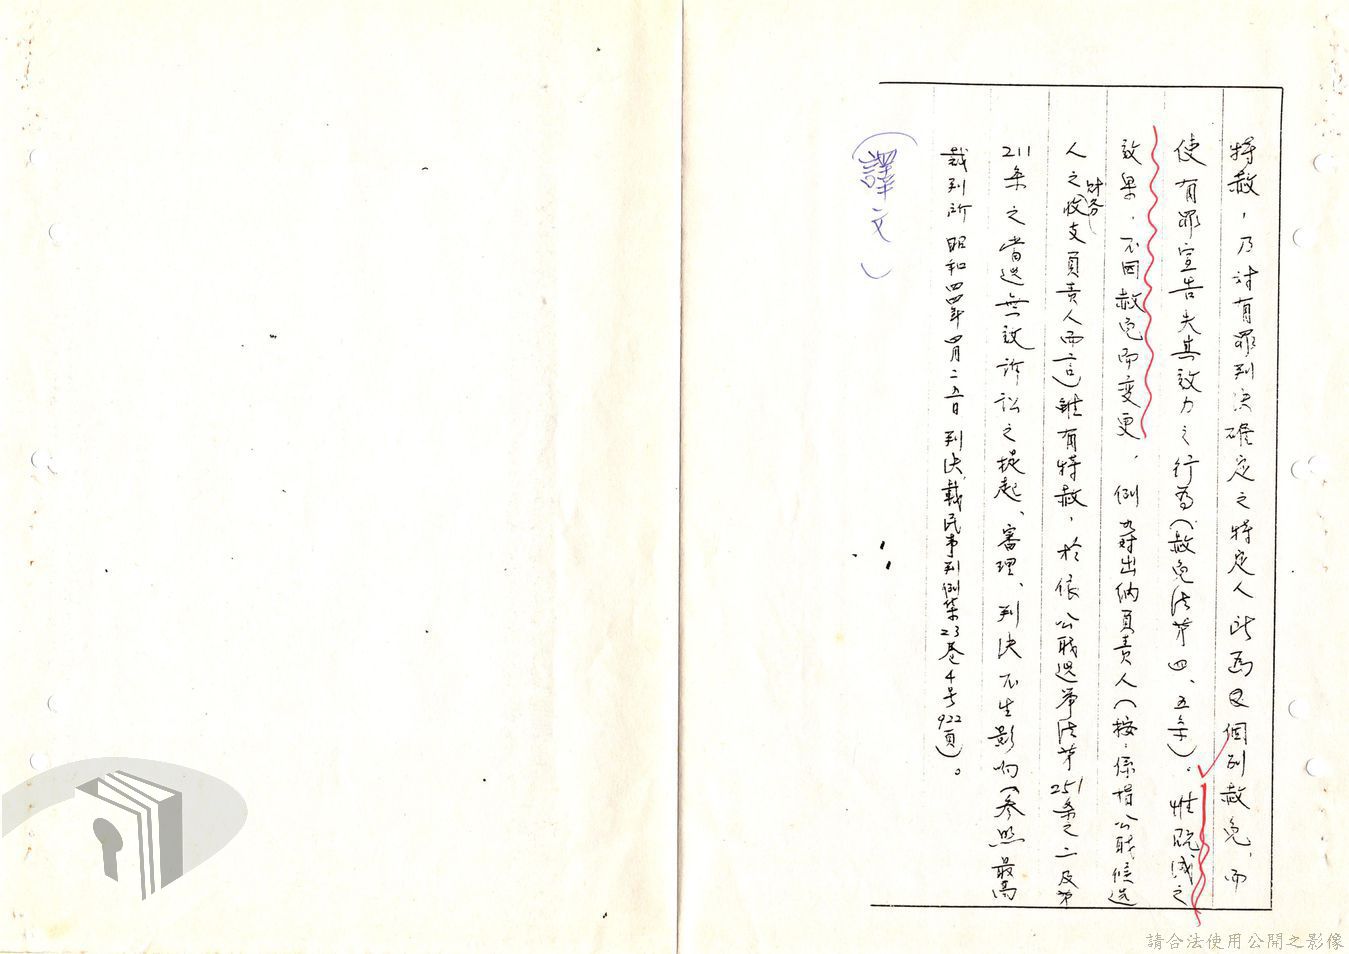 特赦，乃對有罪判決確定之特定人所為之個別赦免，而
使有罪宣告失其效力之行為（赦免法第四、五条）。惟既成之
效果，不因赦免而変更，例如對出納負責人（按：係指公職候選
人之財務收支負責人而言）雖有特赦，於依公職選挙法第251条之二及第
211条之当選無效訴訟之提起、審理、判決不生影响（参照最高
裁判所昭和四四年四月二五日判決，載民事判例集23巻4号922頁）。
（譯文）
請合法使用公開之影像